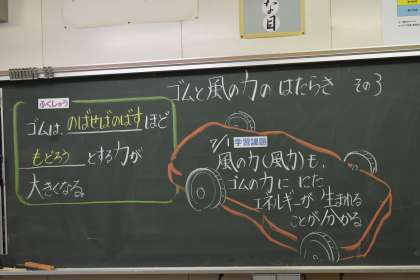 な目
ゴムと風の力の はたらき その3
ふくしゅう
ゴムは、のばせばのばすほど
もどろうとする力が
大きくなる。
7/1 学習課題
風の力(風力)も、
ゴムの力に にた
エネルギーが 生まれる
ことが分かる